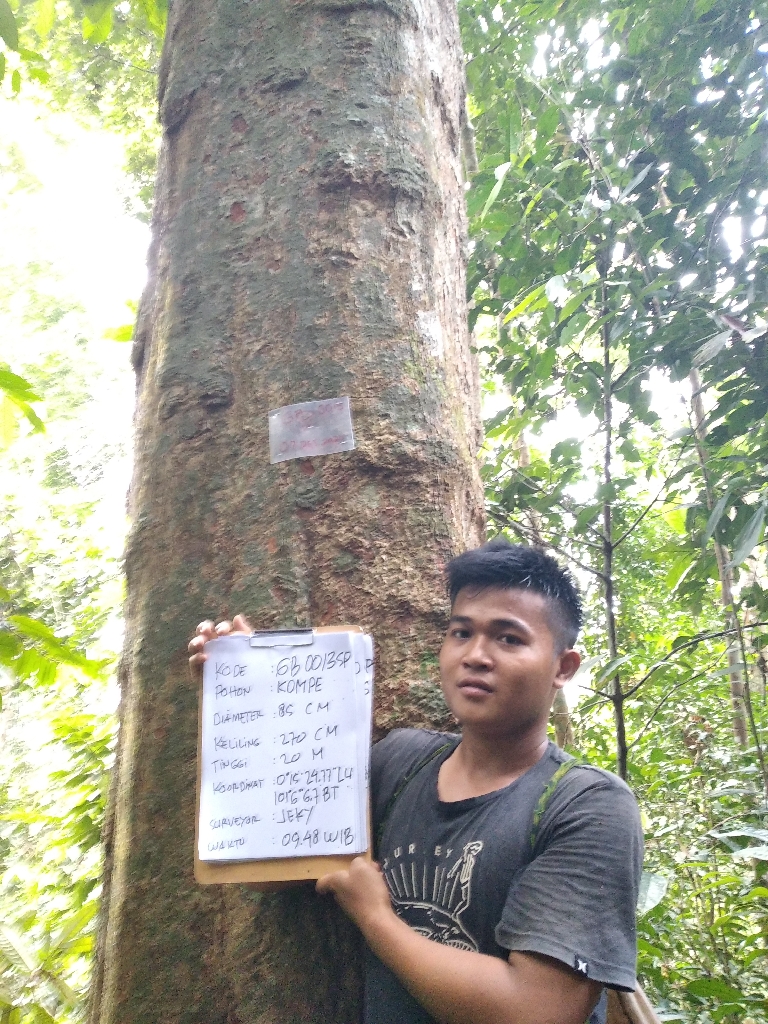 KODE : GB 0013SP
POHON : KOMPE
DIAMETER : 85 CM
KELILING : 270 CM
TINGGI : 20 M
KOORDINAT : 0°15'24.77"LU
101°6'6.7 BT
SURVEYOR : JEKY
WAKTU : 09.48 WIB